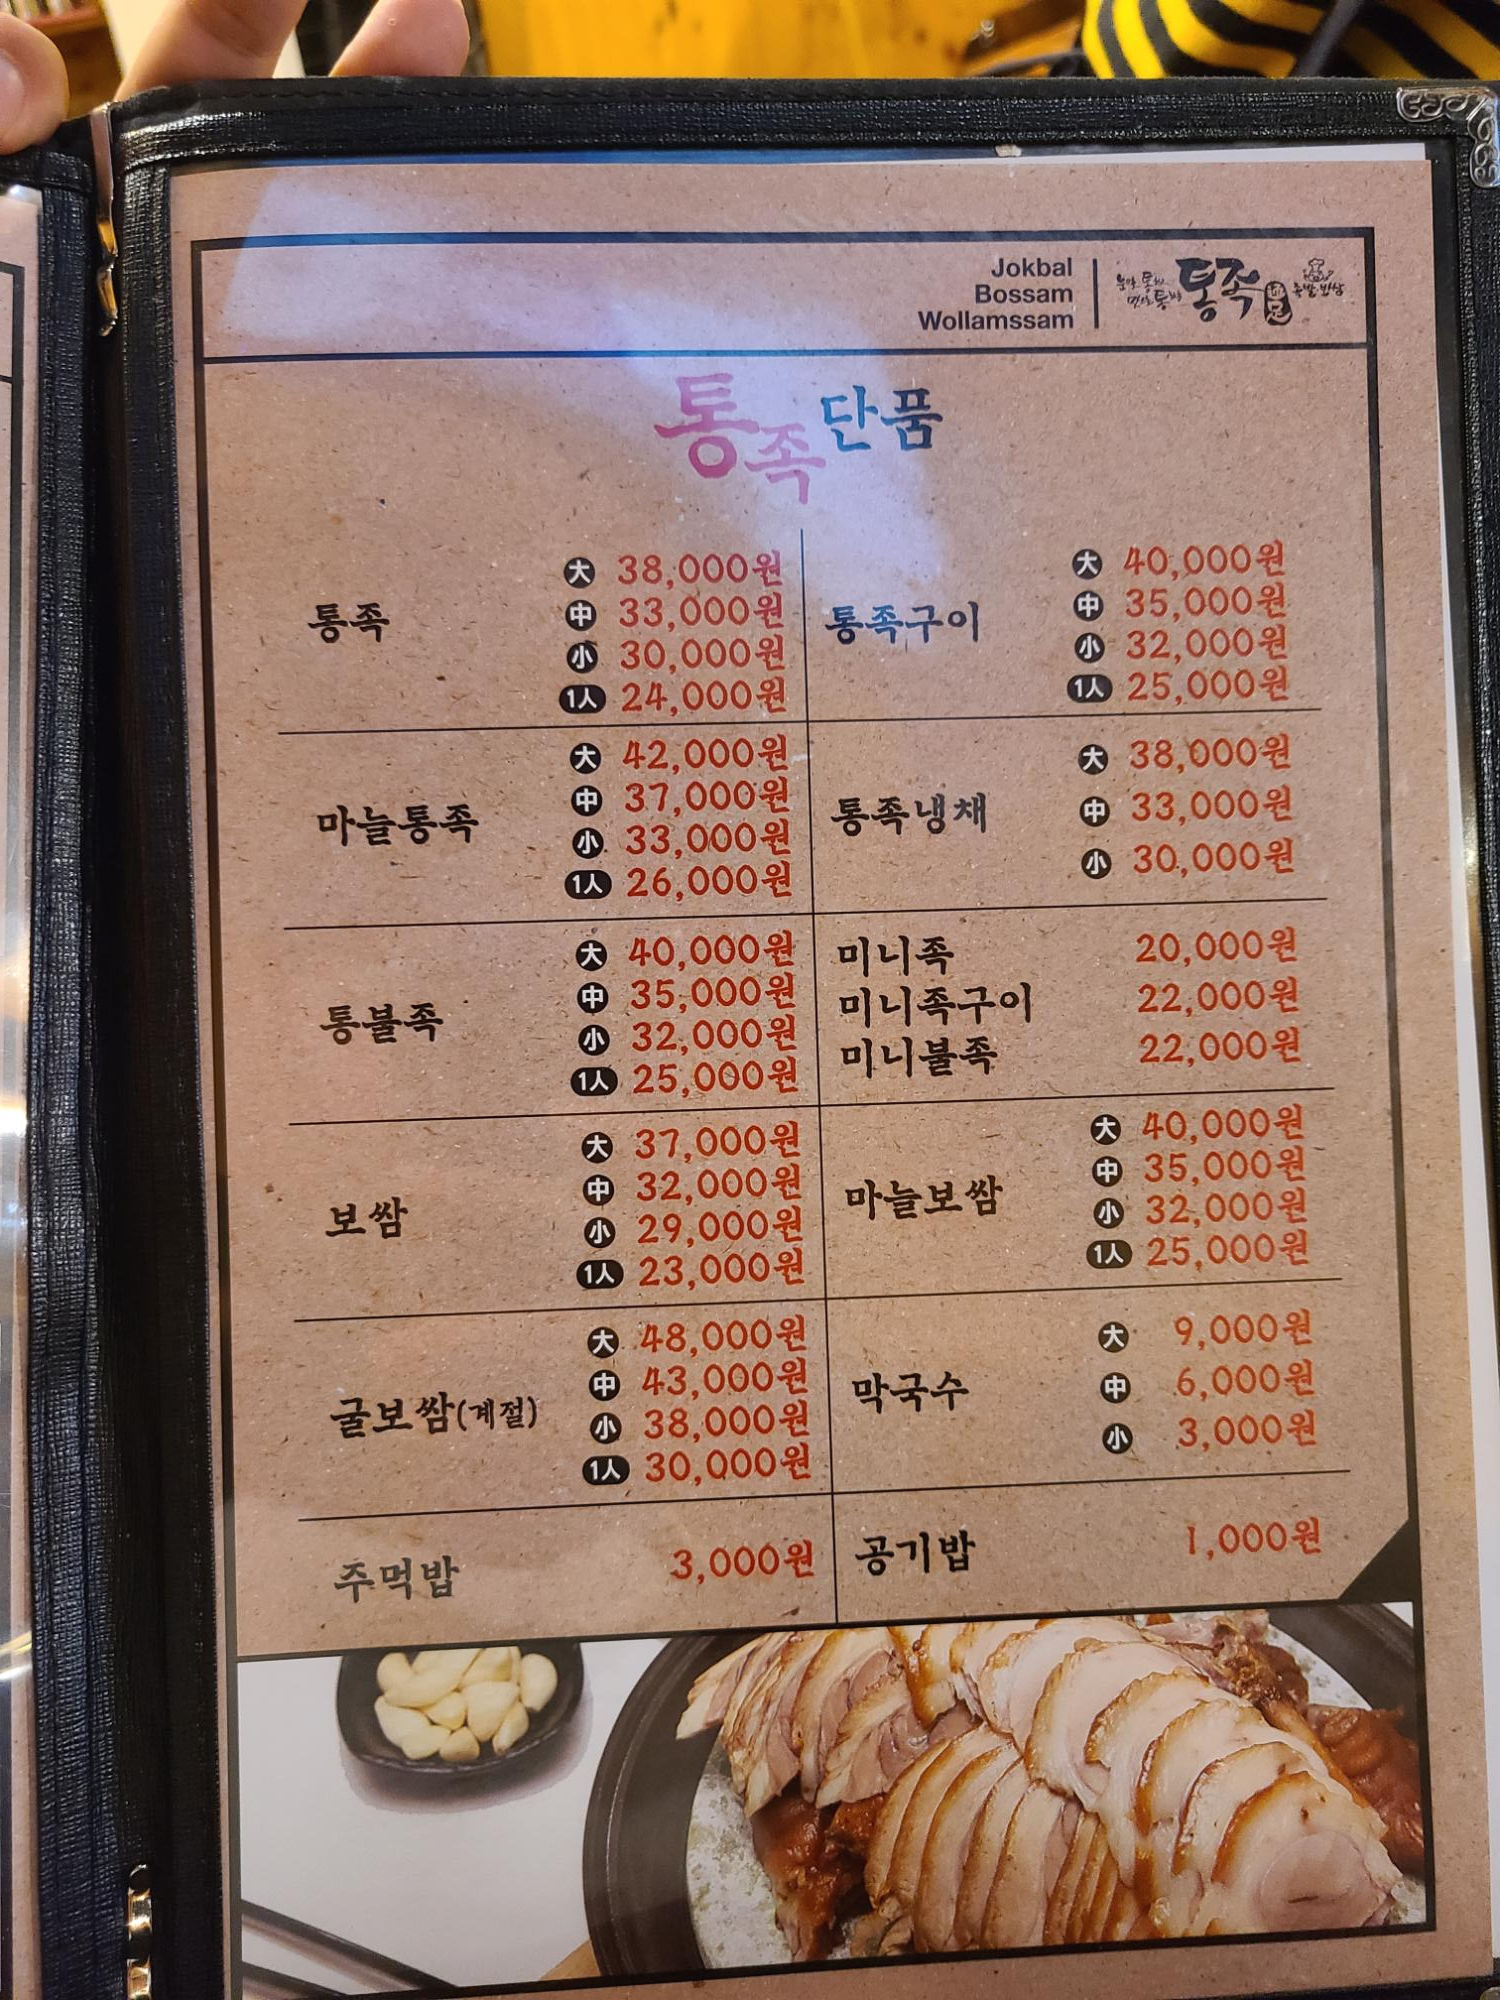 Jokbal
Bossam
Wollamssam
통족
족발보쌈
통족 단품
통족
大 38,000원
中 33,000원
小 30,000원
1人 24,000원
통족구이
大 40,000원
中 35,000원
小 32,000원
1人 25,000원
마늘통족
大 42,000원
中 37,000원
小 33,000원
1人 26,000원
통족냉채
大 38,000원
中 33,000원
小 30,000원
통불족
大 40,000원
中 35,000원
小 32,000원
1人 25,000원
미니족 20,000원
미니족구이 22,000원
미니불족 22,000원
보쌈
大 37,000원
中 32,000원
小 29,000원
1人 23,000원
마늘보쌈
大 40,000원
中 35,000원
小 32,000원
1人 25,000원
굴보쌈(계절)
大 48,000원
中 43,000원
小 38,000원
1人 30,000원
막국수
大 9,000원
中 6,000원
小 3,000원
주먹밥 3,000원
공기밥 1,000원